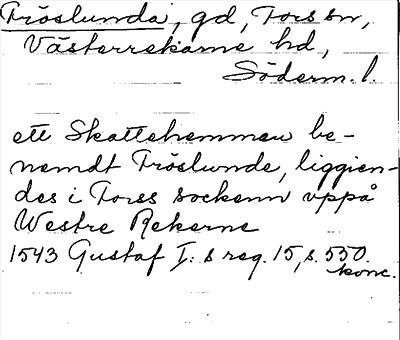 Fröslunda, gd, Tors sn,
Västerrekarne hd,
Söderm. l.
ett Skattehemman be-
nemdt Fröslunde, liggien-
des i Torss sockenn uppå
Westre Rekerne
1543 Gustaf I:s reg. 15, s. 550.
konc.